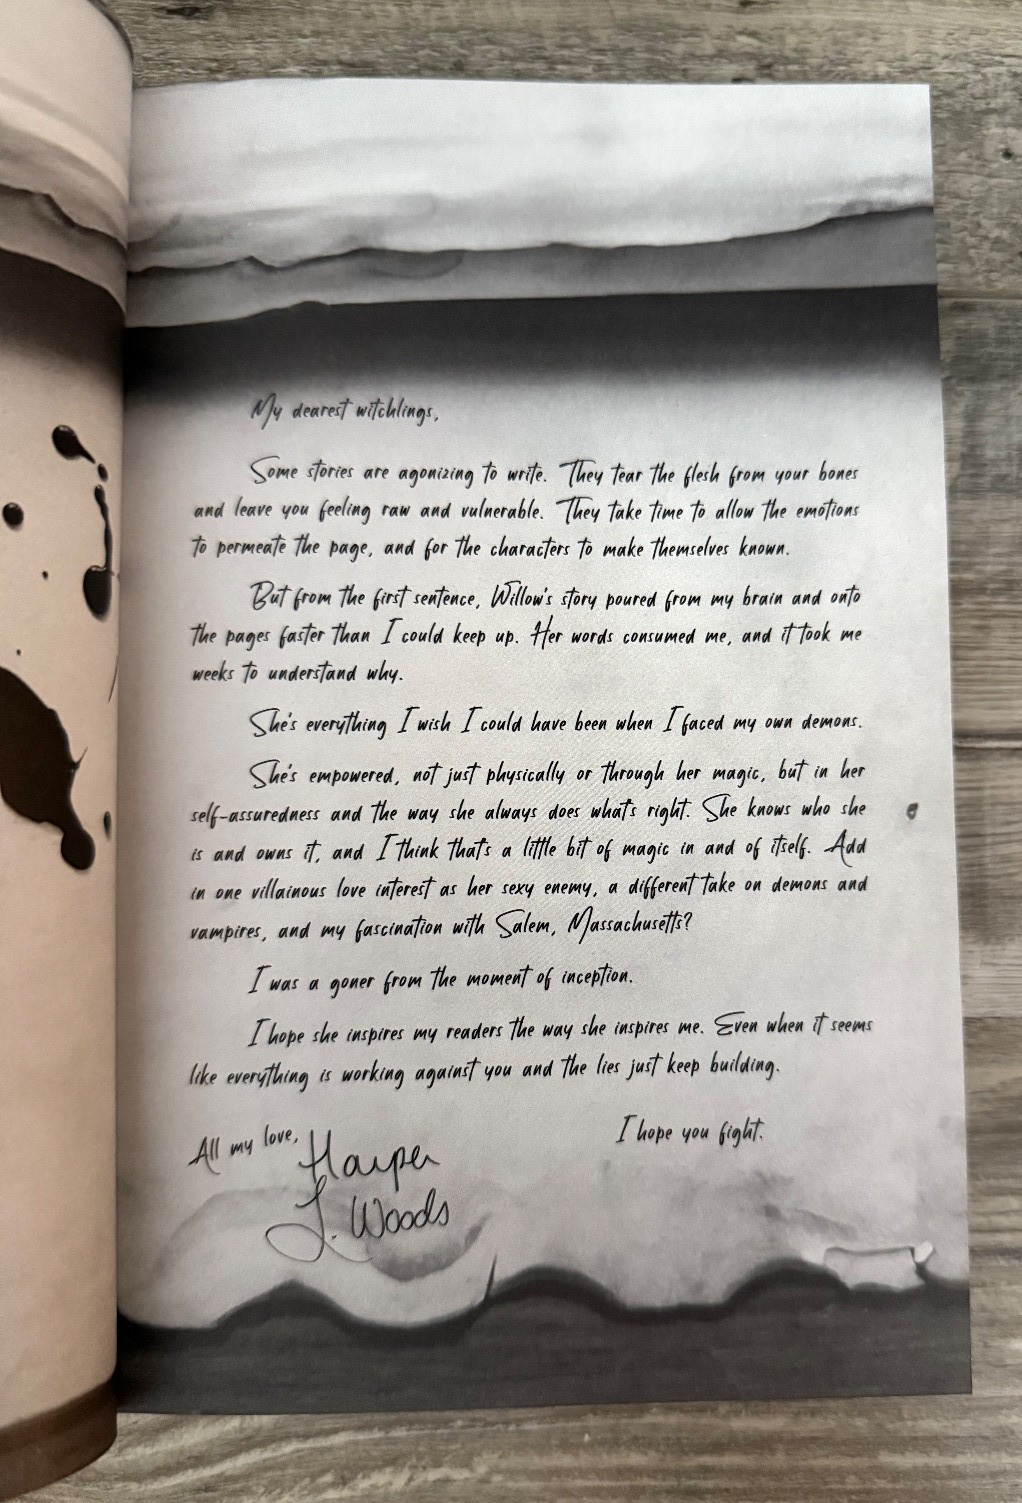 My dearest witchlings,
Some stories are agonizing to write. They tear the flesh from your bones
and leave you feeling raw and vulnerable. They take time to allow the emotions
to permeate the page, and for the characters to make themselves known.
But from the first sentence, Willow's story poured from my brain and onto
the pages faster than I could keep up. Her words consumed me, and it took me
weeks to understand why.
She's everything I wish I could have been when I faced my own demons.
She's empowered, not just physically or through her magic, but in her
self-assuredness and the way she always does what's right. She knows who she
is and owns it, and I think that's a little bit of magic in and of itself. Add
in one villainous love interest as her sexy enemy, a different take on demons and
vampires, and my fascination with Salem, Massachusetts?
I was a goner from the moment of inception.
I hope she inspires my readers the way she inspires me. Even when it seems
like everything is working against you and the lies just keep building.
I hope you fight.
All my love,
Harper
L. Woods